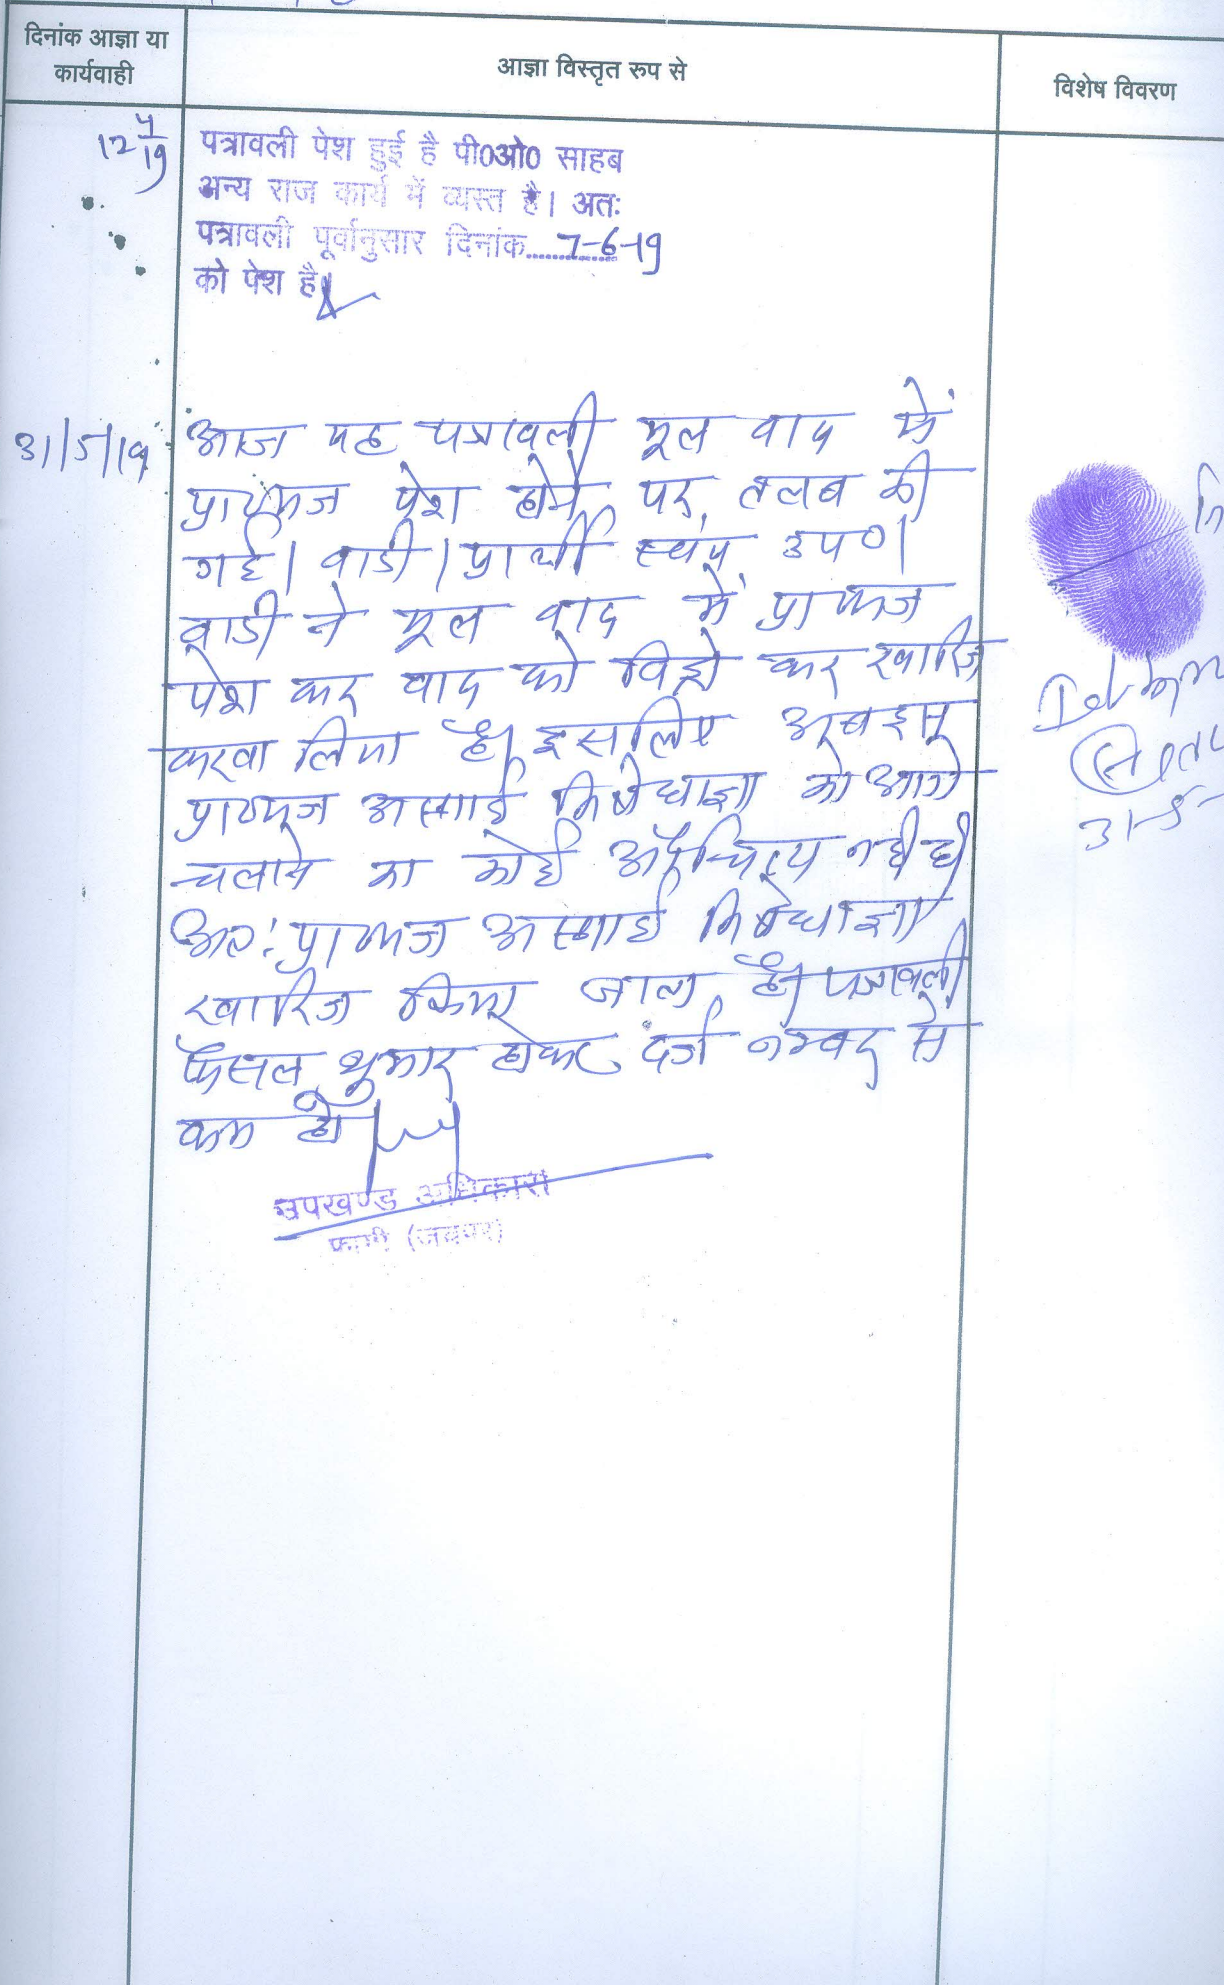 दिनांक आज्ञा या
कार्यवाही
आज्ञा विस्तृत रूप से
विशेष विवरण
12 4/19
पत्रावली पेश हुई है पी0ओ0 साहब
अन्य राज कार्य में व्यस्त है। अतः
पत्रावली पूर्वानुसार दिनांक.....7-6-19
को पेश है।
31/5/19
आज यह पत्रावली मूल वाद में
प्रा०पत्र पेश होने पर तलब की
गई। वादी/प्रार्थी स्वंय उप०।
वादी ने मूल वाद में प्रा०पत्र
पेश कर वाद को विड्रो कर खारिज
करवा लिया है। इसलिए अब इस
प्रा०पत्र अस्थाई निषेधाज्ञा को आगे
चलाने का कोई औचित्य नही है
अतः प्रा०पत्र अस्थाई निषेधाज्ञा
खारिज किया जाता है। पत्रावली
फैसल शुमार होकर दर्ज नम्बर से
कम हो।
उपखण्ड अधिकारी
फागी (जयपुर)
31-5-